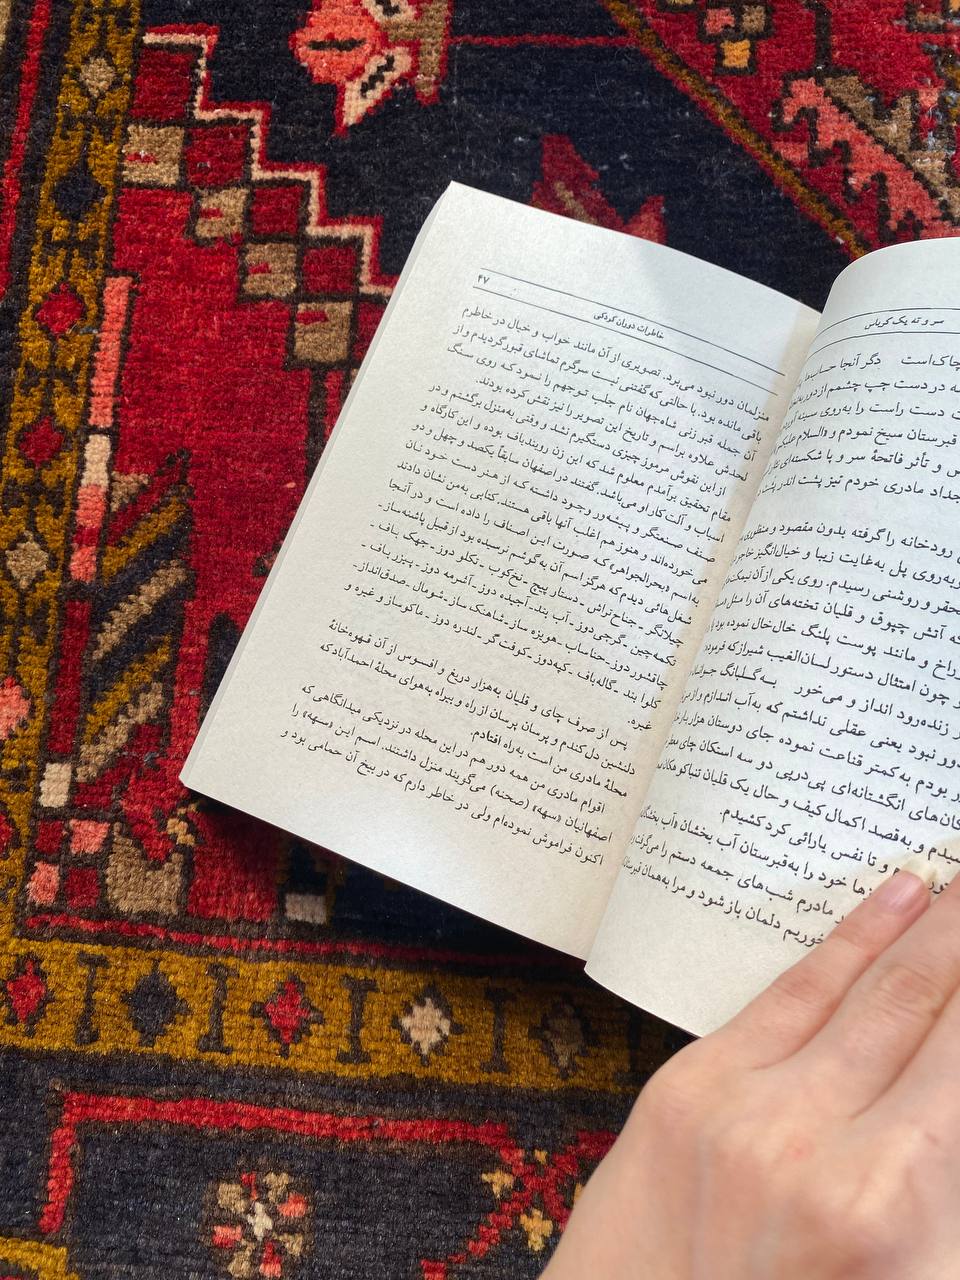 سر و ته یک کرباس
چاک است دگر آنجا حساب
در دست چپ چشمم از دور به
دست راست را به‌روی سینه
قبرستان سیخ نمودم و «السلام علیکم
و تأثر فاتحهٔ سر و پا شکسته‌ای
اجداد مادری خودم نیز پشت اندر پشت
رودخانه را گرفته بدون مقصود و منظوری
به‌روی پل به‌غایت زیبا و خیال‌انگیز
و روشنی رسیدم. روی یکی از آن نیمکت
که آتش چپوق و قلیان تخته‌های آن را مثل
و مانند پوست پلنگ خال‌خال نموده بود
چون امتثال دستور لسان‌الغیب شیراز که فرموده
زنده‌رود انداز و می‌خور به گلبانگ جوانان
نبود یعنی عقلی نداشتم که به‌آب اندازم و از می
بودم به کمتر قناعت نموده جای دوستان هزار بار
های انگشتانه‌ای پی‌درپی دو سه استکان چای
و به‌قصد اکمال کیف و حال یک قلیان تنباکو
و تا نفس یارائی کرد کشیدم.
خود را به‌قبرستان آب بخشان «آب بخشگان
مادرم شب‌های جمعه دستم را می‌گرفت
خوریم دلمان باز شود و مرا به‌همان قبرستان
خاطرات دوران کودکی
۴۷
منزلمان دور نبود می‌برد. تصویری از آن مانند خواب و خیال در خاطرم
باقی مانده بود. با حالتی که گفتنی نیست سرگرم تماشای قبور گردیدم و از
آن جمله قبر زنی شاه‌جهان نام جلب توجهم را نمود که روی سنگ
لحدش علاوه براسم و تاریخ این تصویر را نیز نقش کرده بودند.
از این نقوش مرموز چیزی دستگیرم نشد و وقتی به‌منزل برگشتم و در
مقام تحقیق برآمدم معلوم شد که این زن روبندباف بوده و این کارگاه و
اسباب و آلت کار او می‌باشد. گفتند در اصفهان سابقاً یکصد و چهل و دو
صنف صنعتگر و پیشه‌ور وجود داشته که از هنر دست خود نان
می‌خورده‌اند و هنوز هم اغلب آنها باقی هستند. کتابی به‌من نشان دادند
به‌اسم «بحرالجواهر» که صورت این اصناف را داده است و در آنجا
شغل هائی دیدم که هرگز اسم آن به گوشم نرسیده بود از قبیل پاشنه‌ساز ـ
چلانگر ـ جناح‌تراش ـ دستار پیچ ـ نخ‌کوب ـ تکلو دوز ـ جهک باف ـ
تکمه‌چین ـ گرجی‌دوز ـ آب بند ـ آجیده دوز ـ آثرمه دوز ـ پیزر باف ـ
چاقشور دوز ـ حناساب ـ هویزه ساز ـ شاهنک ساز ـ شومال ـ صدق‌انداز ـ
کلوا بند ـ گاله‌باف ـ کپه‌دوز ـ کوفت گر ـ لندره دوز ـ ماکوساز و غیره و
غیره.
پس از صرف چای و قلیان به‌هزار دریغ و افسوس از آن قهوه‌خانهٔ
دلنشین دل کندم و پرسان پرسان از راه و بیراه به‌هوای محلهٔ احمدآباد که
محلهٔ مادری من است به‌راه افتادم.
اقوام مادری من همه دور هم در این محله در نزدیکی میدانگاهی که
اصفهانیان «سهه» (صحنه) می‌گویند منزل داشتند. اسم این «سهه» را
اکنون فراموش نموده‌ام ولی در خاطر دارم که در بیخ آن حمامی بود و